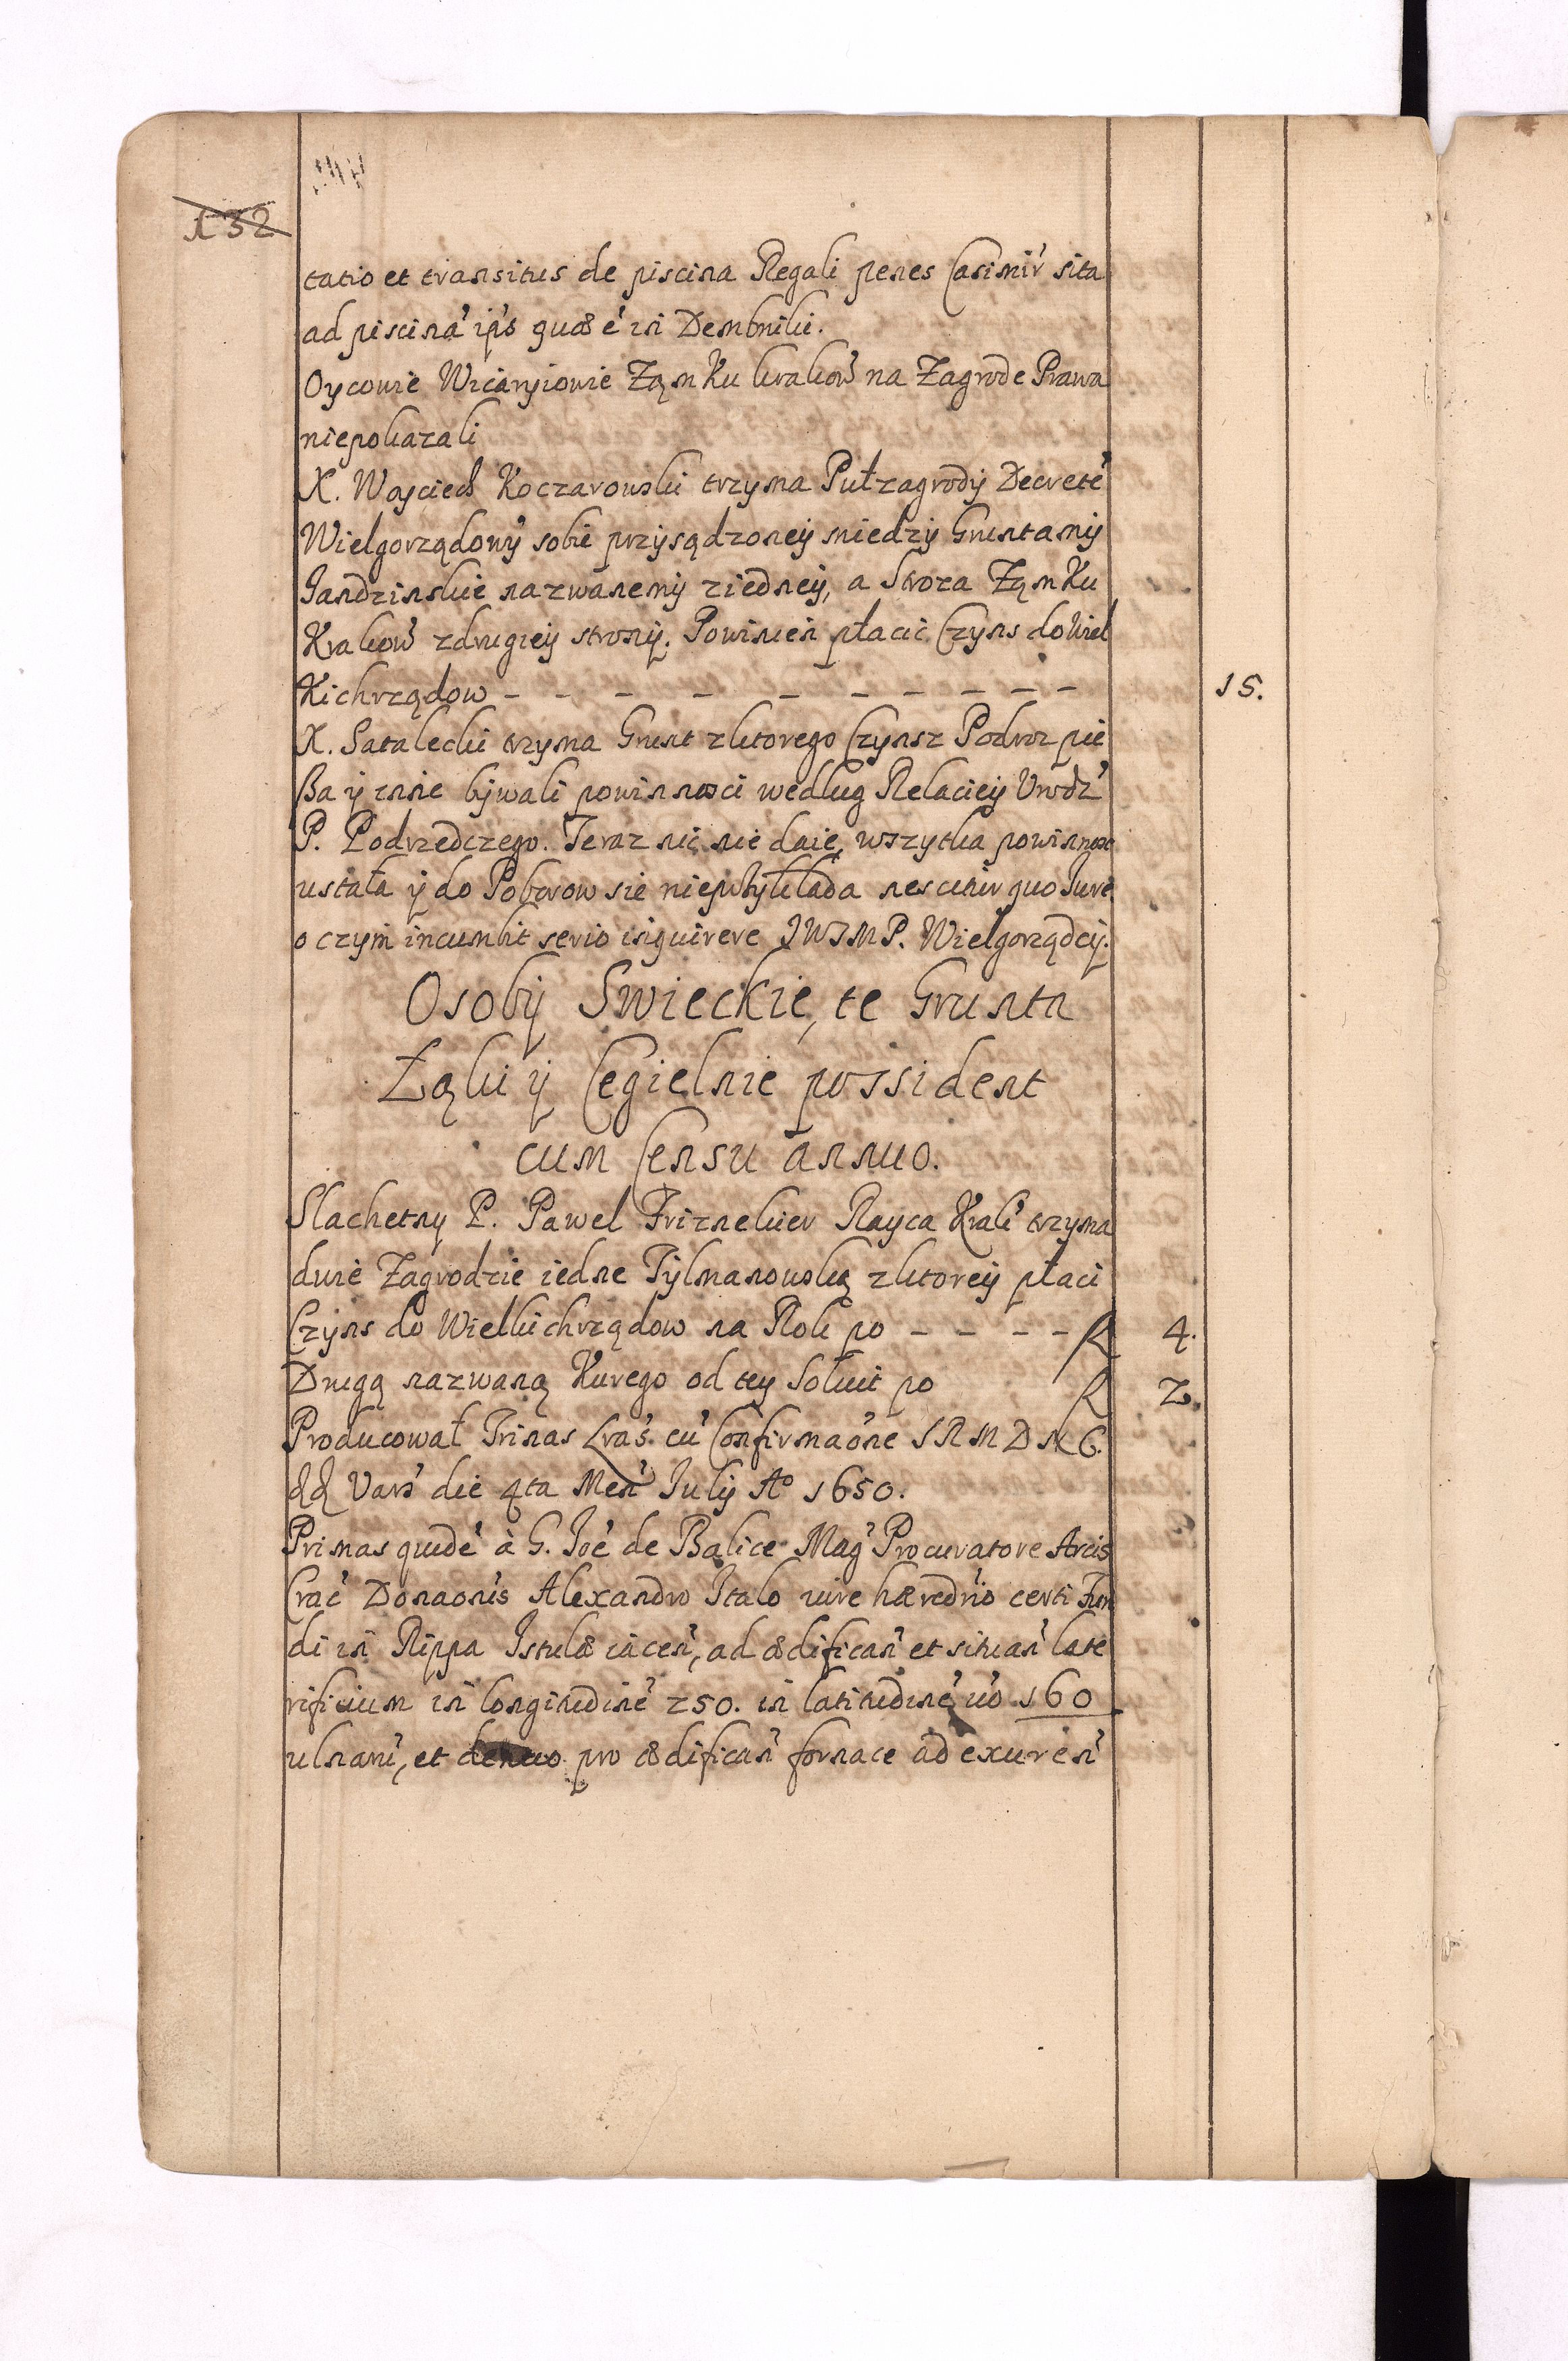 132
tatio et transitus de piscina Regali penes Casimir' sita
ad piscina' ip's quæ e' in Dembniki.
Oycowie Wicaryiowie Zamku krakow' na Zagrode Prawa
niepokazali
X. Woyciech Koczarowski trzyma Pułzagrody Decrete'
Wielgorządowy' sobie przysądzoney miedzy Gruntamy
Jandzinskie nazwanemy ziedney, a Stroza Ząmku
Krakow' zdrugiey strony. Powinien płacic Czyns do Wiel
Kichrządow - - - - - - - - - - 15.
X. Satalecki trzyma Grunt zktorego Czynsz Podroz pie
sza y inne bywali powinnosci według Relaciey Urodz'
P. Podrzedczego. Teraz nic nie daie, wszytka powinnosc
ustała y do Poborow sie nieprzykłada nescitur quo Jure
o czym incumbit serio inquirere JWJMP. Wielgorządcy.
Osoby Swieckie, te Grunta
Łąki y Cegielnie possident
cum Censu annuo.
Slachetny P. Pawel Frizneker Rayca Krak' trzyma
dwie Zagrodzie iedne Tylmanowską zktorey płaci
Czyns do Wielkichrządow na Rok po - - - - R 4.
Drugą nazwaną Kurego od tey Solvit po R 2.
Producował Trinas Lras' cu' Confirmaone SRMDNC.
dd Vars' die 4ta Men' July Ao 1650.
Primas quide' à G. Joe' de Balice Mag' Procuratore Arcis
Crac' Donaonis Alexandro Italo iure hæred'rio certi Fun
di in Rippa Istulæ iacen', ad ædifican' et situan' late
rificium in longitudine' 250. in latitudine' uo' 160
ulnaru', et denuo pro ædifican' fornace ad exuren'